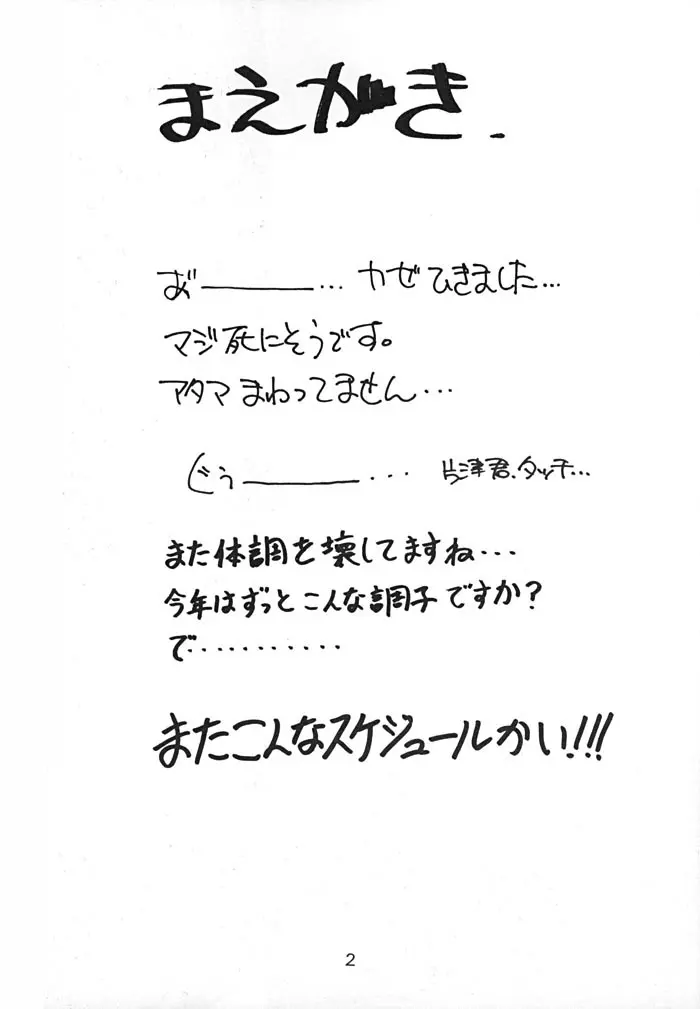 まえがき.
あ゛ーーー… カゼひきました…
マジ死にそうです。
アタマまわってません…
ぐぅーーー... 片津君、タッチ…
また体調を壊してますね…
今年はずっとこんな調子ですか？
で..........
またこんなスケジュールかい!!!
2